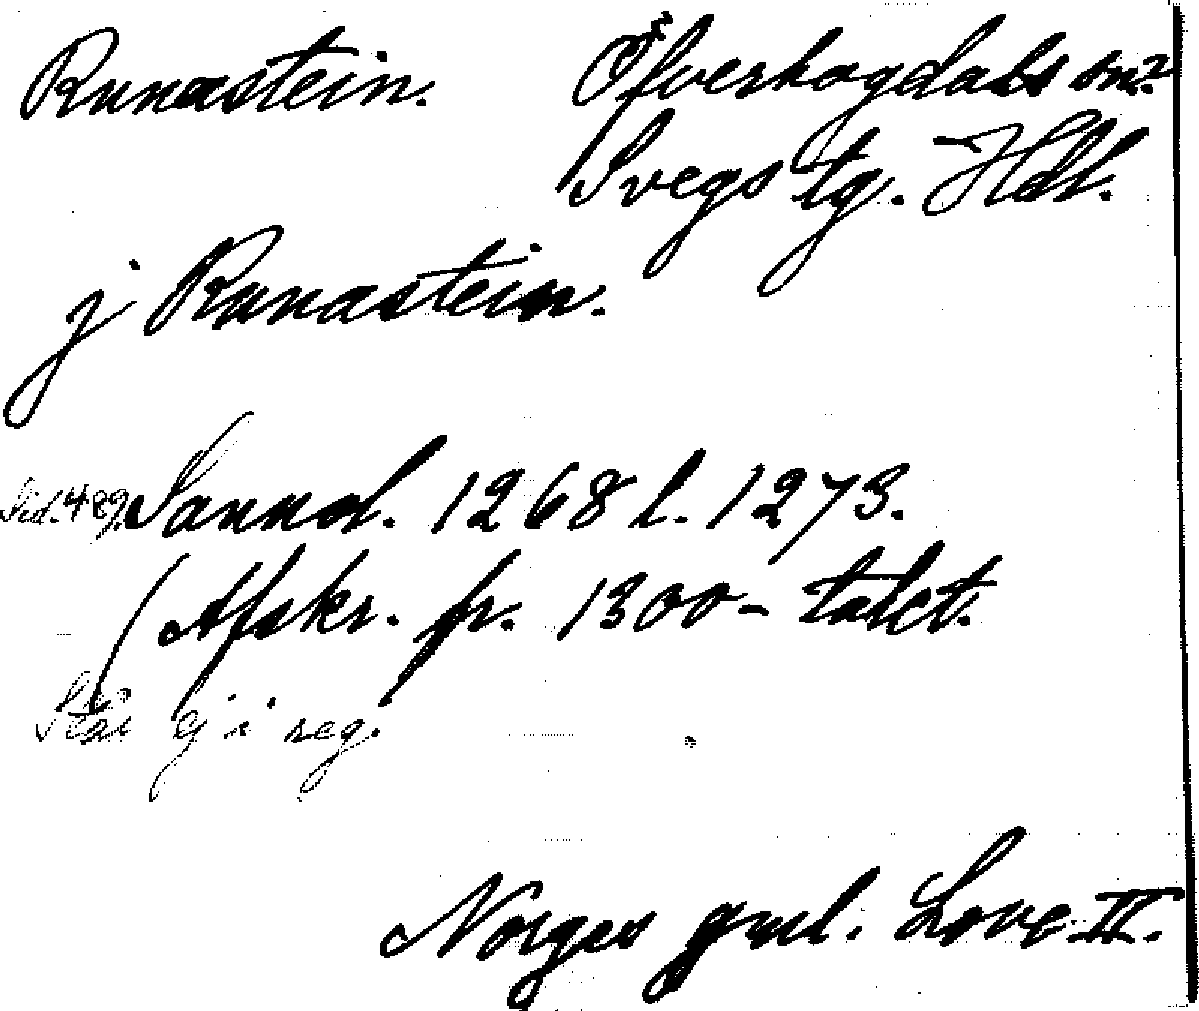 Runastein. Öfverhogdals sn?
Svegs tg. Hdl.
j Runastein.
Sid. 489. Sannol. 1268 l. 1273.
(Afskr. fr. 1300-talet.
Står ej i reg.
Norges gml. Love II.